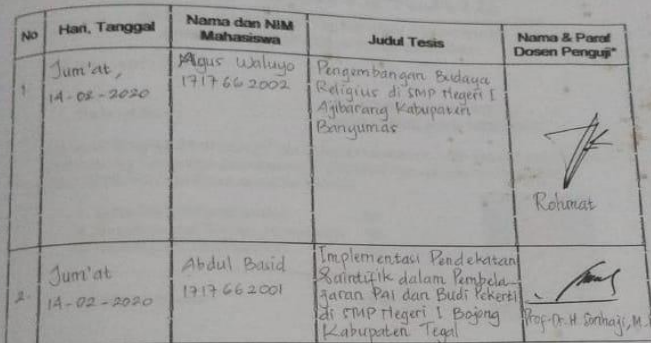 No
Hari, Tanggal
Nama dan NIM
Mahasiswa
Judul Tesis
Nama & Paraf
Dosen Penguji*
1.
Jum'at,
14-02-2020
Agus Waluyo
1717662002
Pengembangan Budaya
Religius di SMP Negeri I
Ajibarang Kabupaten
Banyumas
Rohmat
2.
Jum'at
14-02-2020
Abdul Basid
1717662001
Implementasi Pendekatan
Saintifik dalam Pembela-
jaran PAI dan Budi Pekerti
di SMP Negeri I Bojong
Kabupaten Tegal
Prof. Dr. H. Sonhaji, M.